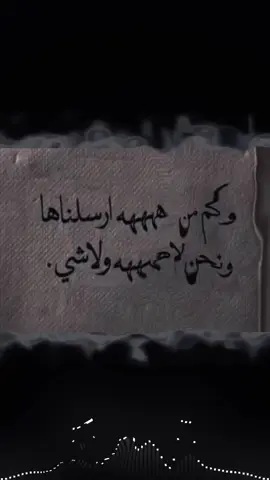 وكم من هههههه ارسلناها
ونحن لا همههه ولا شي.